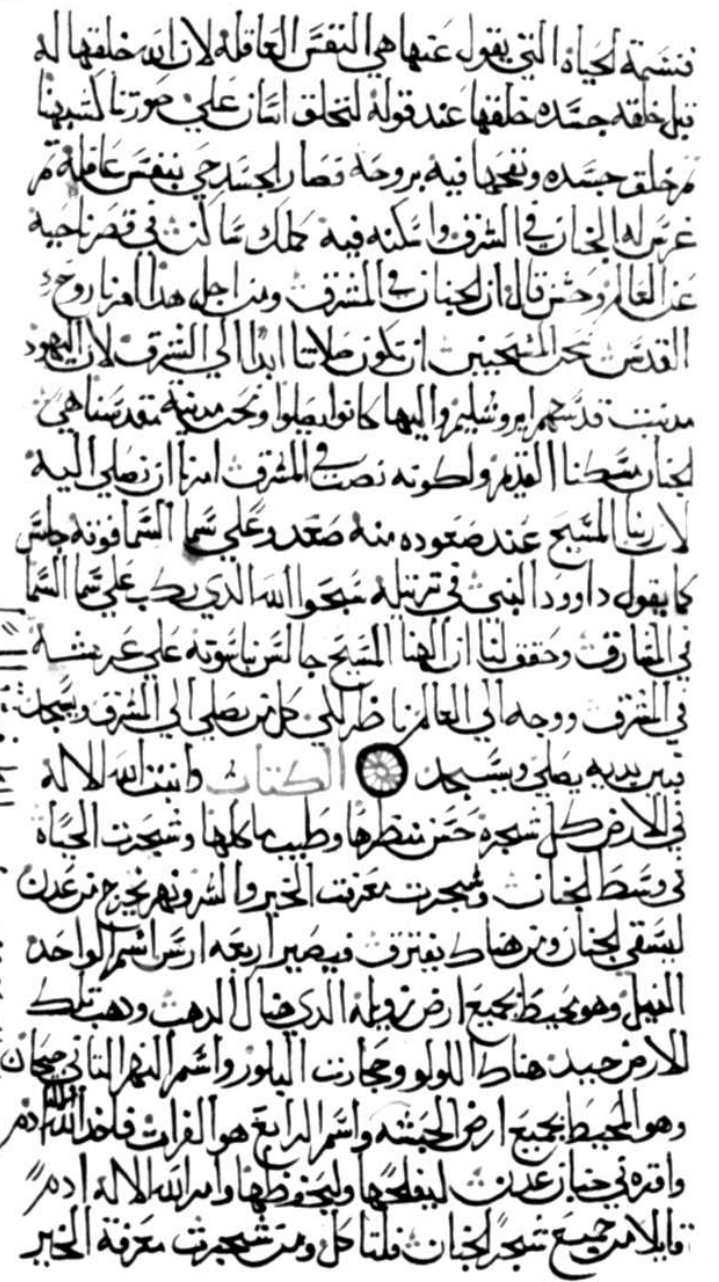 فنسمة الحياه التي يقول عنها هي النفس العاقله لان الله خلقها له
قبل خلقه جسده خلقها عند قوله لنخلق انسان علي صورتنا كشبهنا
ثم خلق جسده ونفخها فيه بروحه فصار الجسد حي بنفس عاقله ثم
غرس له الجنان في الشرق واسكنه فيه كملك ساكن في قصر ناحيه
عن العالم وحسن قال ان الجنان في المشرق ومن اجل هذا امرنا روح
القدس نحن المسيحيين ان تكون صلاتنا ابدا الي الشرق لان اليهود
مدينت قدسهم ايروشليم واليها كانوا يصلوا ونحن مدينة مقدسنا هي
الجنان مسكنا القديم ولكونه نصب في المشرق امرنا ان نصلي اليه
لان ربنا المسيح عند صعوده منه صعد وعلي سما السما فوته جلس
كما يقول داوود النبي في ترتيله سبحوا الله الذي ركب علي سما السما
في المشارق وحقق لنا ان الهنا المسيح جالس بناسوته علي عرشه
في الشرق ووجهه الي العالم ناظر الي كل من يصلي الي الشرق ويسجد
فبين يديه يصلي ويسجد الكتاب وانبت الله الاله
في الارض كل شجره حسن منظرها وطيب ماكلها وشجرت الحياة
في وسط الجنان وشجرت معرفت الخير والشر ونهر يخرج من عدن
ليسقي الجنان ومن هناك يفترق فيصير اربعه ارس اسم الواحد
النيل وهو محيط بجميع ارض زويله الذي هنال الدهب ودهب تلك
الارض جيد هناك اللولو وحجارت البلور واسم النهر التاني جيحان
وهو المحيط بجميع ارض الحبشه واسم الرابع هو الفرات فاخد الله ادم
واقره في جنان عدن ليفلحها وليحفظها وامر الله الاله ادم
قايلا من جميع شجر الجنان فلتاكل ومن شجرت معرفة الخير